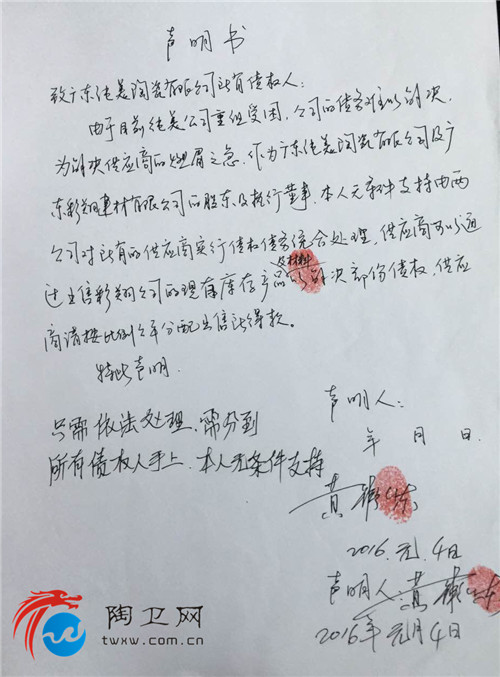 声明书
致广东纯美陶瓷有限公司所有债权人:
由于目前纯美公司重组受困,公司的债务难以解决,
为解决供应商的燃眉之急,作为广东纯美陶瓷有限公司及广
东彩翔建材有限公司的股东及执行董事,本人无条件支持由两
公司对所有的供应商实行债权债务统合处理,供应商可以通
过出售彩翔公司的现有库存产品及材料以解决部份债权,供应
商请按比例公平分配出售所得款。
特此声明.
声明人:
年 月 日.
只需依法处理,需分到
所有债权人手上,本人无条件支持
黄
2016.元.4日
声明人 黄
2016年元月4日
陶卫网
www.twxw.com.cn